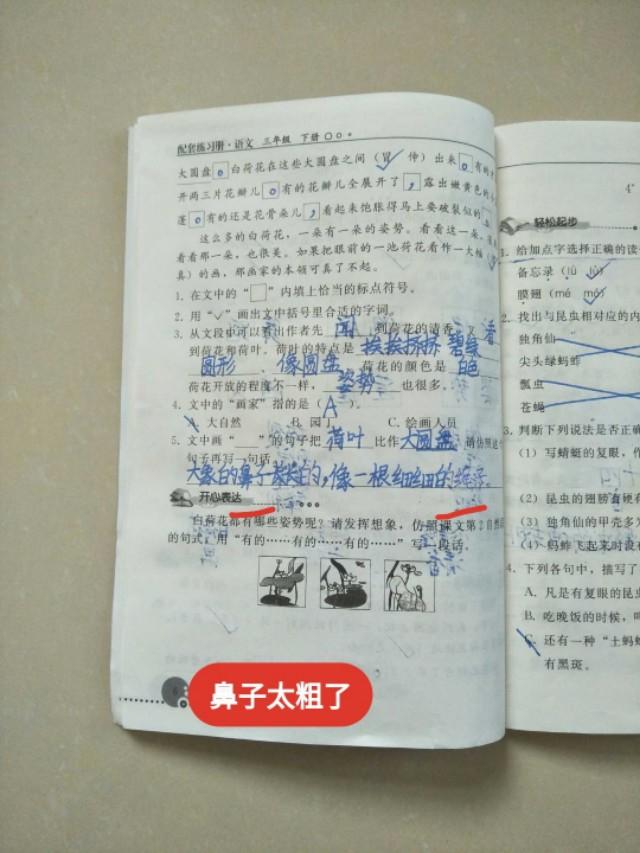 配套练习册·语文 三年级 下册
大圆盘。白荷花在这些大圆盘之间（冒 伸）出来。有的才
开两三片花瓣儿。有的花瓣儿全展开了，露出嫩黄色的小
蓬。有的还是花骨朵儿，看起来饱胀得马上要破裂似的。
这么多的白荷花，一朵有一朵的姿势。看看这一朵，很美
看看那一朵，也很美。如果把眼前的一池荷花看作一大幅
真）的画，那画家的本领可真了不起。
1. 在文中的“□”内填上恰当的标点符号。
2. 用“√”画出文中括号里合适的字词。
3. 从文段中可以看出作者先 闻 到荷花的清香，又 看
到荷花和荷叶。荷叶的特点是 挨挨挤挤 碧绿
圆形、像圆盘 荷花的颜色是 白色
荷花开放的程度不一样， 姿势 也很多。
4. 文中的“画家”指的是（ A ）。
A. 大自然 B. 园丁 C. 绘画人员
5. 文中画“____”的句子把 荷叶 比作 大圆盘 请仿照这个
句子再写一句话。
大象的鼻子长长的，像一根细细的绳子
开心表达
白荷花都有哪些姿势呢？请发挥想象，仿照课文第2自然段
的句式，用“有的……有的……有的……”写一段话。
6
鼻子太粗了
4
轻松起步
1. 给加点字选择正确的读
备忘录（lù lù）
膜翅（mé mó）
2. 找出与昆虫相对应的内
独角仙
尖头绿蚂蚱
瓢虫
苍蝇
3. 判断下列说法是否正确
（1）写蜻蜓的复眼，作
（2）昆虫的翅膀有硬有
（3）独角仙的甲壳多为
（4）蚂蚱飞起来时没有
4. 下列各句中，描写了
A. 凡是有复眼的昆虫
B. 吃晚饭的时候，呜
C. 还有一种“土蚂蚱
有黑斑。